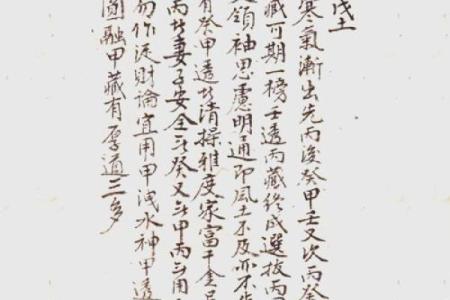 戊土
寒氣漸出先丙後癸甲壬又次丙癸
藏可期一榜壬透丙藏終成選拔丙
領袖思慮明通即風土不及亦不
有癸甲透者清操雅度家富千金
丙者妻子安全無癸又無甲丙
勿作從財論宜用甲洩水神甲透
圓融甲藏有厚道三多